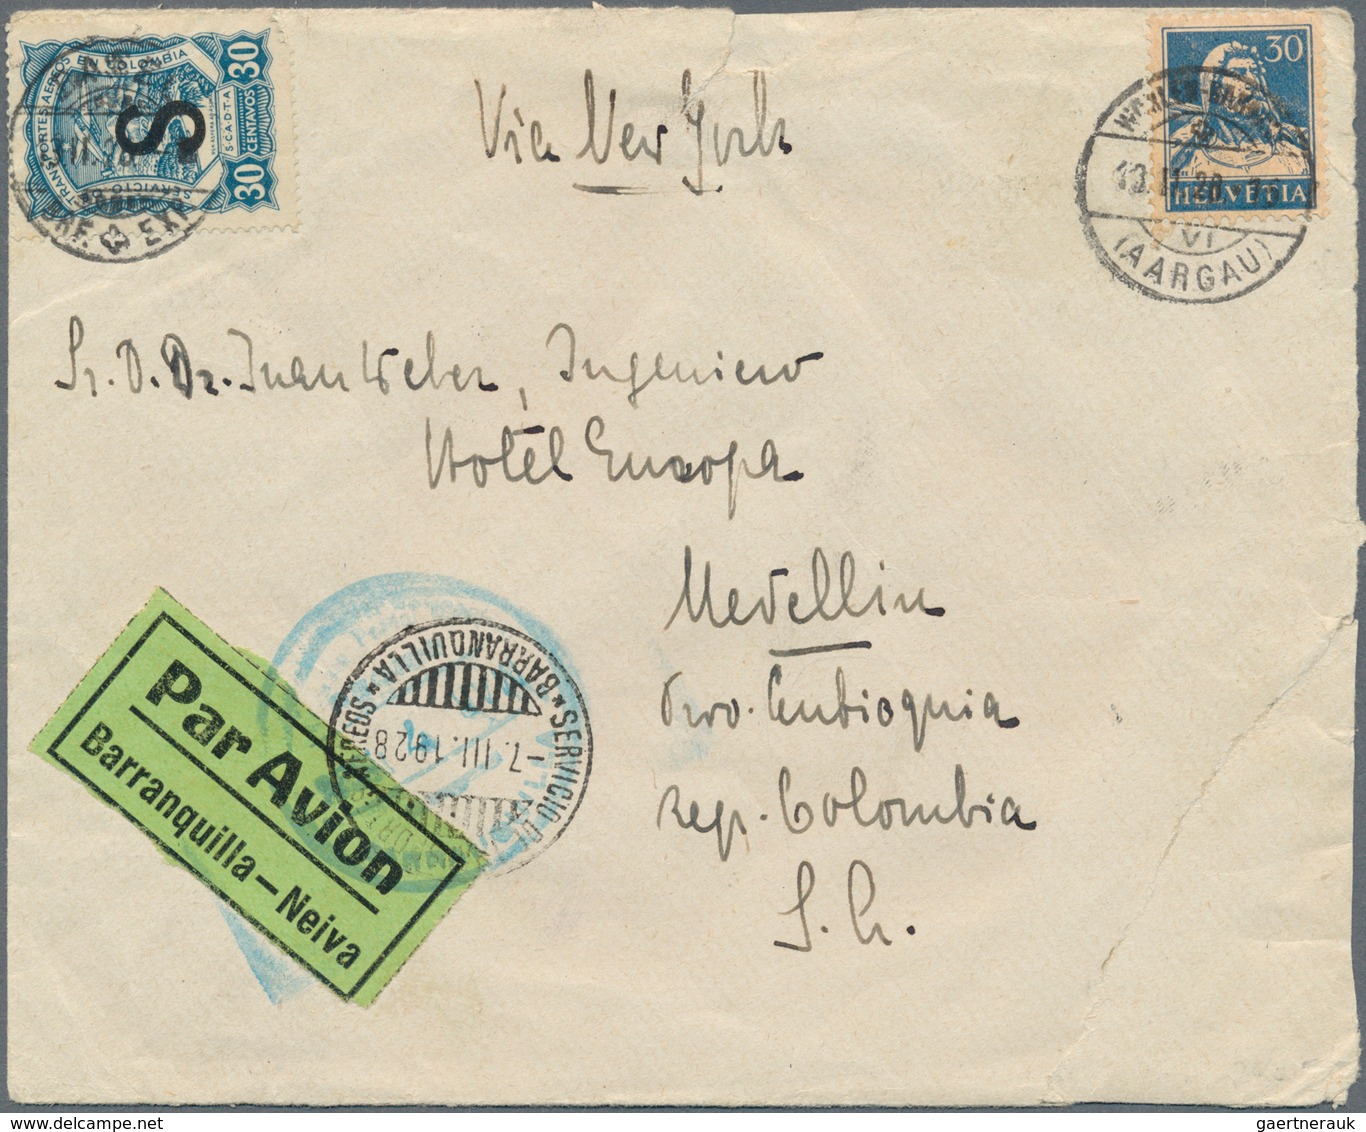 TRANSPORTES AEREOS EN COLOMBIA
SERVICIO
S.C.A.D.T.A.
30 CENTAVOS 30
S
EXP.
Via New York
30
HELVETIA
VI
(AARGAU)
Sr. D. Dr. Juan Weber, Ingeniero
Hotel Europa
Medellin
Prov. Antioquia
rep. Colombia
S. A.
Par Avion
Barranquilla – Neiva
SERVICIO DE
*BARRANQUILLA*
-7. III. 1928
gaertnerauk